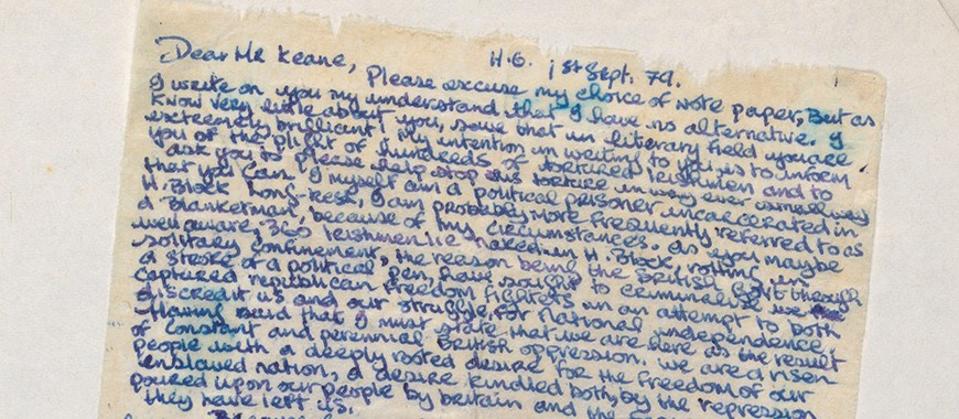 Dear Mr Keane,
H.6. 1st Sept. 79.
Please excuse my choice of note paper, But as
I write on you my understand that I have no alternative. I
know very little about you, save that in literary field you are
extremely brilliant! My intention in writing to you is to inform
you of the plight of hundreds of tortured Irishmen and to
ask you to please help stop this torture in way ever
that you can. I myself am a political prisoner incarcerated in
H. Block Long-Kesh, I am probably more frequently referred to as
a 'Blanketman', because of my circumstances. As you maybe
well aware, 360 Irishmen lie naked in H. Block, rotting in
solitary confinement, the reason being the British Gov't through
a stroke of a political pen, have sought to criminalise us
captured republican freedom fighters in an attempt to both
discredit us and our struggle for national independence.
Having said that I must state that we are here as the result
of constant and perennial British oppression. We are a risen
people with a deeply rooted desire for the freedom of our
enslaved nation, a desire kindled both, by the repression
poured upon our people by britain and the
they have left us.